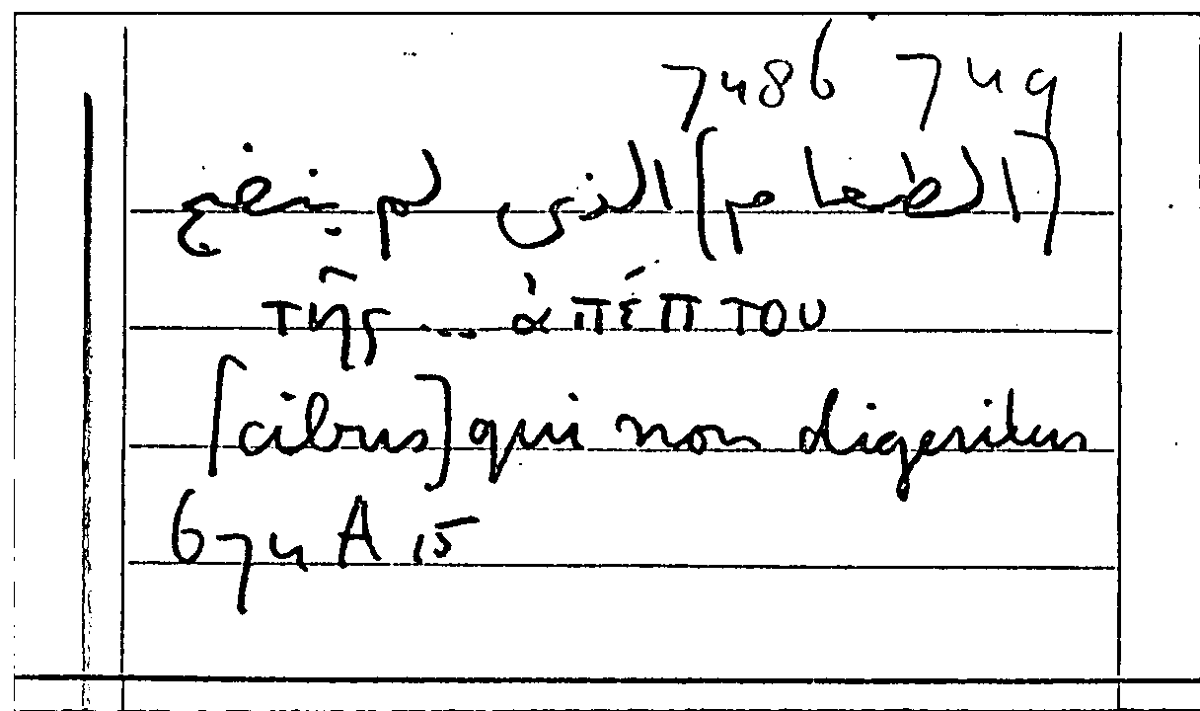 7486 749
(الطعام) الذى لم ينضج
τῆς ... ἀπέπτου
[cibus] qui non digeritur
674 A 15